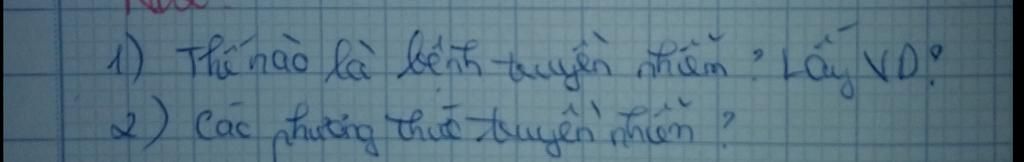 1) Thế nào là bệnh truyền nhiễm? Lấy VD?
2) Các phương thức truyền nhiễm?